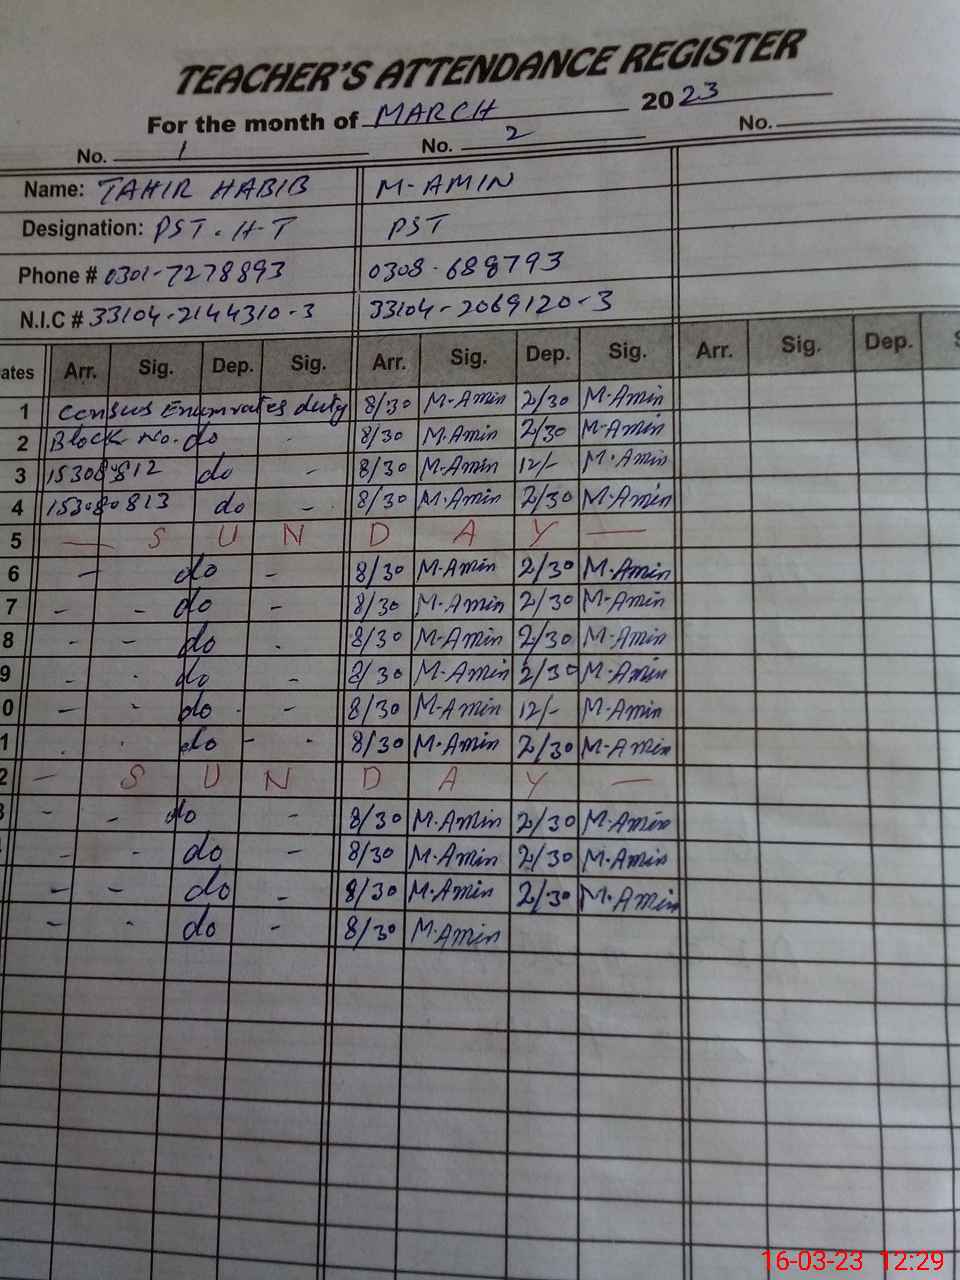 TEACHER'S ATTENDANCE REGISTER
For the month of MARCH 2023
No. 1 No. 2 No.
Name: TAHIR HABIB M-AMIN
Designation: PST. H-T PST
Phone # 0301-7278893 0308-688793
N.I.C # 33104-2144310-3 33104-2069120-3
ates Arr. Sig. Dep. Sig. Arr. Sig. Dep. Sig. Arr. Sig. Dep. S
1 Census Enumrates duty 8/30 M-Amin 2/30 M-Amin
2 Block No. do 8/30 M.Amin 2/30 M-Amin
3 do - 8/30 M-Amin 12/- M.Amin
4 153080813 do - 8/30 M-Amin 2/30 M-Amin
5 — S U N D A Y —
6 - do - 8/30 M-Amin 2/30 M.Amin
7 - - do - 8/30 M-Amin 2/30 M-Amin
8 - - do . 8/30 M-Amin 2/30 M-Amin
9 - . do - 8/30 M-Amin 2/30 M-Amin
0 - . do . - 8/30 M-Amin 12/- M-Amin
1 . . do - . 8/30 M.Amin 2/30 M-Amin
2 — S U N D A Y —
3 - - do - 8/30 M.Amin 2/30 M.Amin
- . do - 8/30 M-Amin 2/30 M-Amin
- - do - 8/30 M.Amin 2/30 M.Amin
- . do - 8/30 M.Amin
16-03-23 12:29